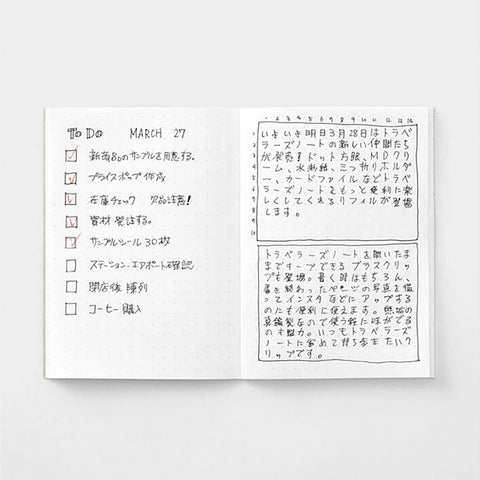 To Do MARCH 27
新商品のサンプルを用意する。
プライスポップ作成
在庫チェック 欠品注意!
資材発注する。
サンプルシール 30枚
ステーション、エアポート確認
閉店後 陳列
コーヒー購入
1 2 3 4 5 6 7 8 9 10 11 12 13 14
1 いよいよ明日3月28日はトラベ
2 ラーズノートの新しい仲間たち
3 が発売!ドット方眼、MDクリ
4 ーム、水彩紙、三つ折りホルダ
5 ー、カードファイルなどトラベ
6 ラーズノートをもっと便利に楽
7 しくしてくれるリフィルが登場
8 します。
9
10
トラベラーズノートを開いたま
までキープできるブラスクリッ
プも登場。書く時はもちろん、
書き終わったページの写真を撮
ってインスタなどにアップする
のにも便利に使えます。無垢の
真鍮なので使う程に味がでる
のも魅力。いつもトラベラーズ
ノートに留めて持ち歩きたいク
リップです。